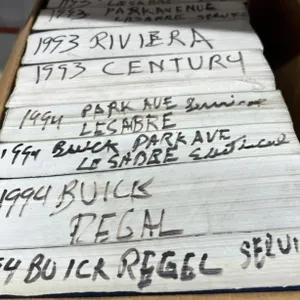 1993 LESABRE
1993 PARKAVENUE
LESABRE
1993 RIVIERA
1993 CENTURY
1994 PARK AVE Service
LESABRE
1994 BUICK PARK AVE
LESABRE Electrical
1994 BUICK
REGAL
94 BUICK REGEL SERVI